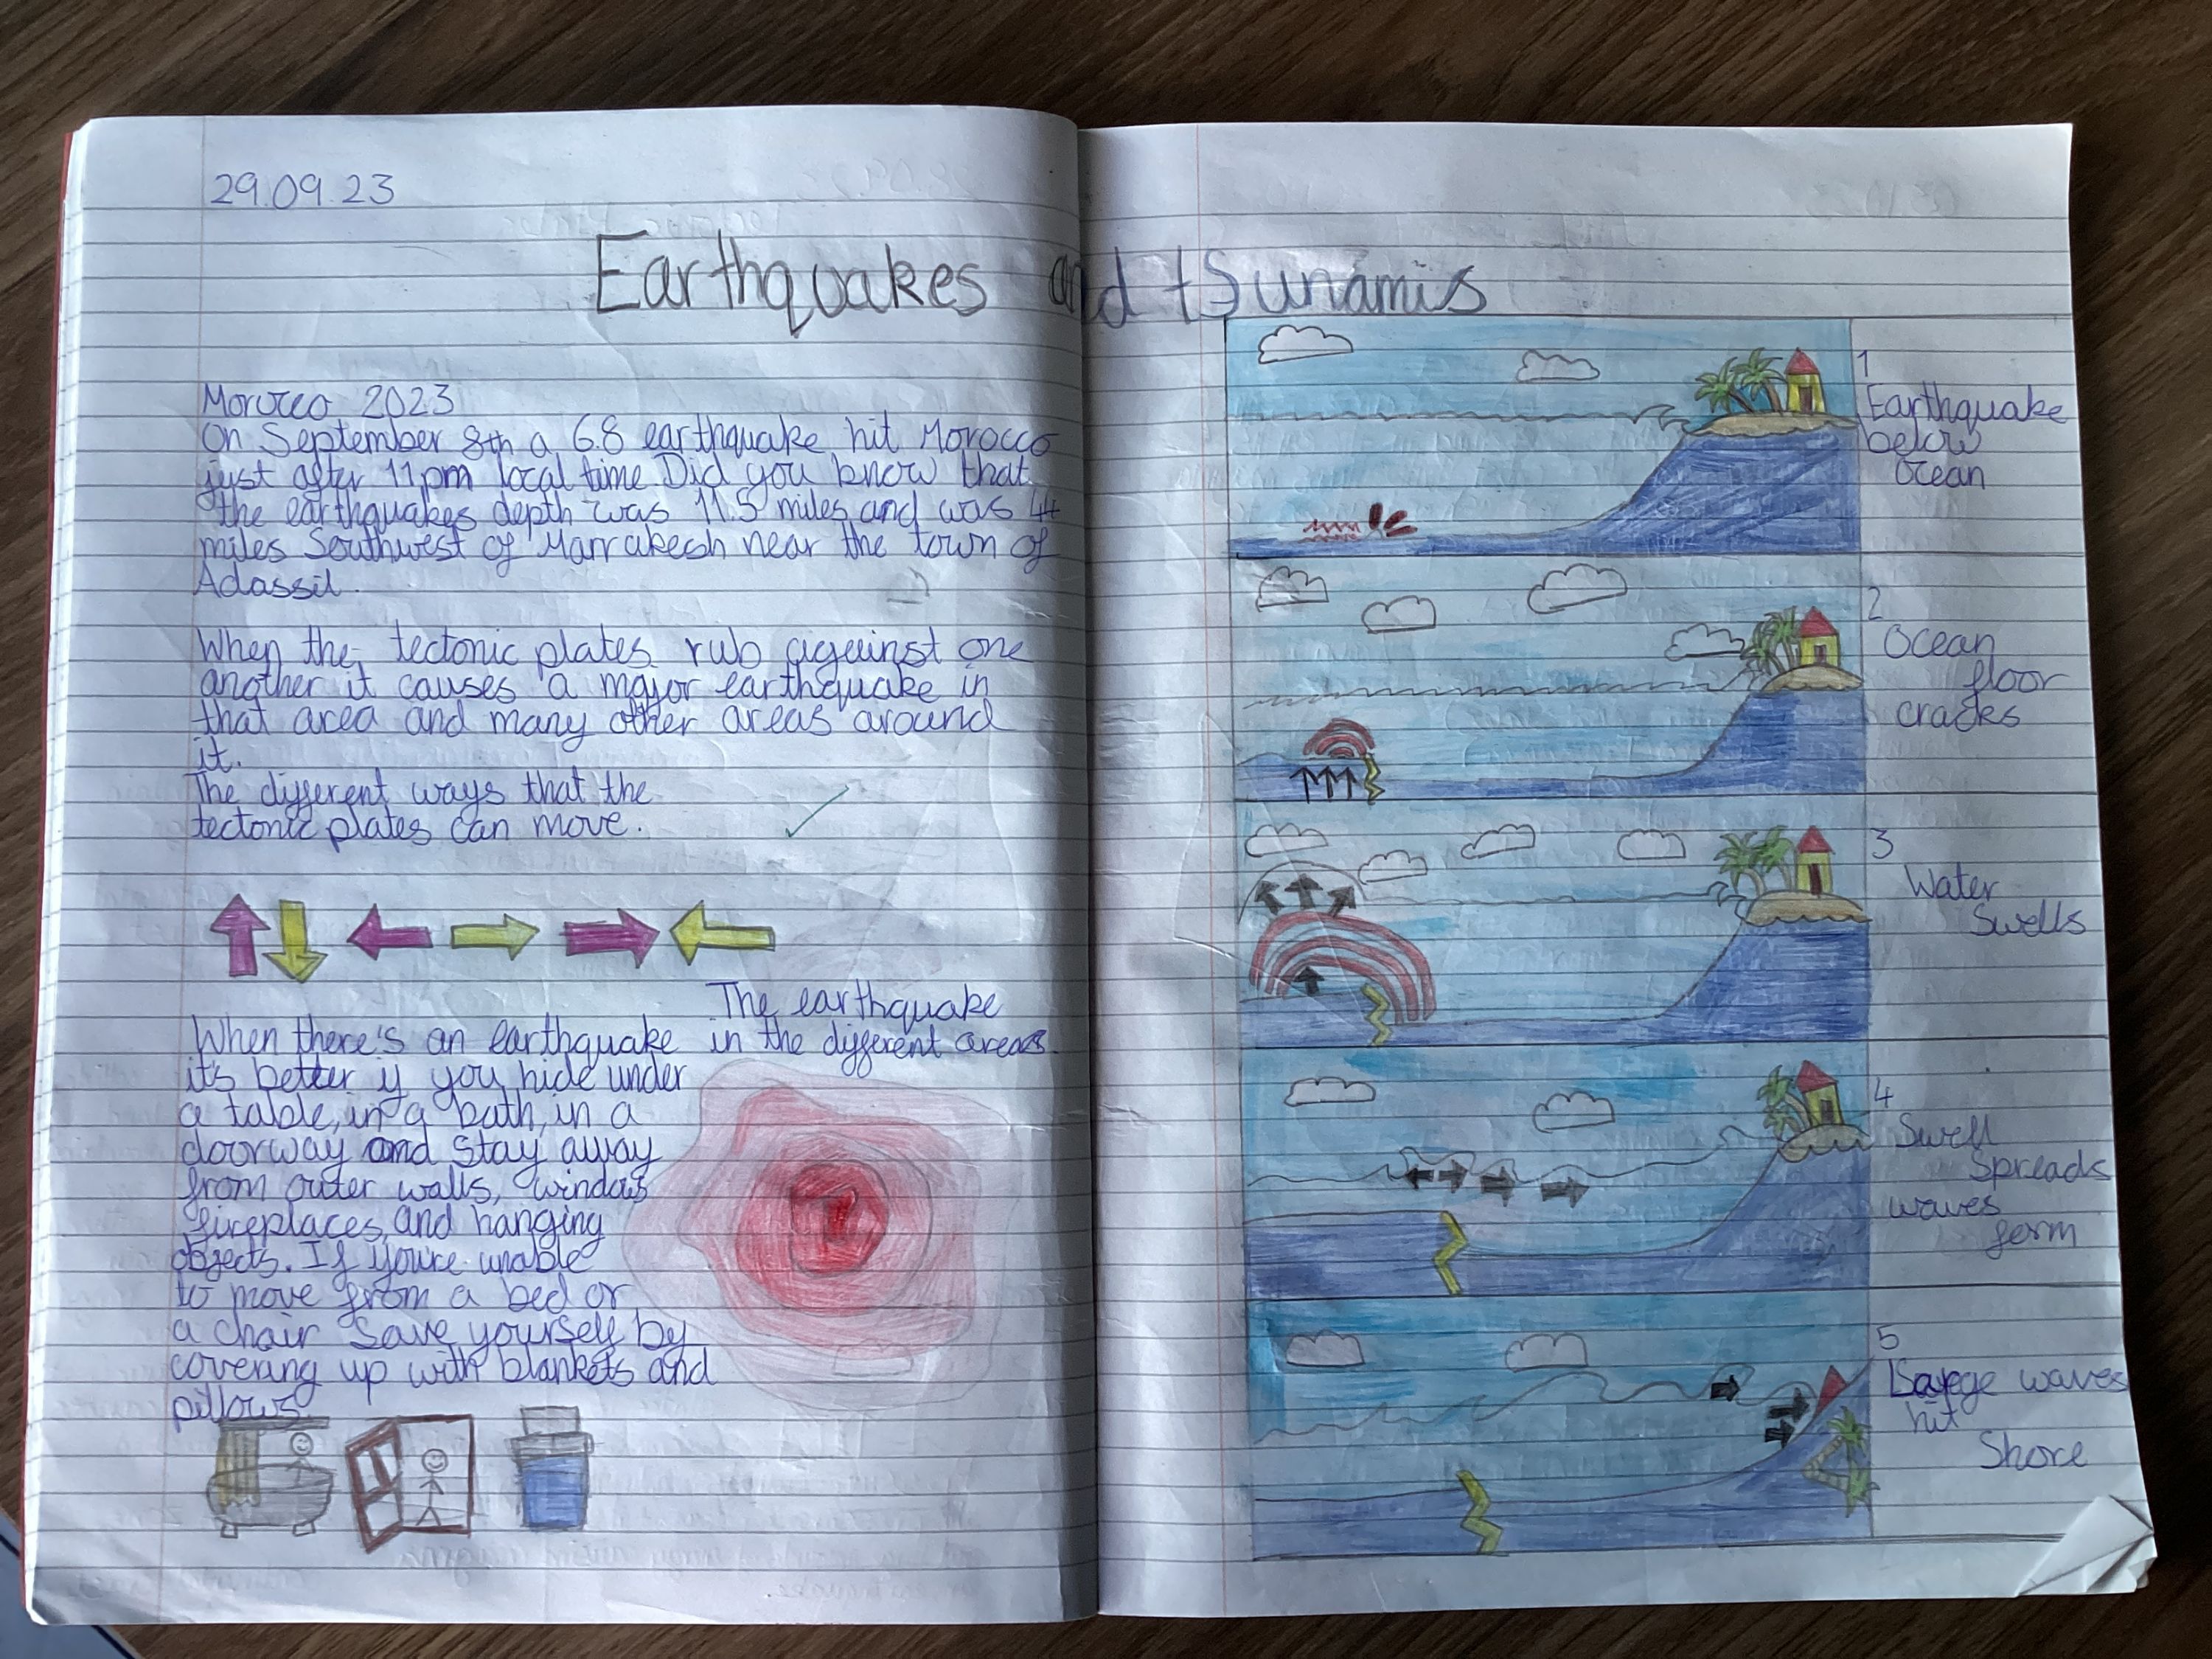 29.09.23
Earthquakes and tsunamis
Morocco 2023
On September 8th a 6.8 earthquake hit Morocco
just after 11pm local time Did you know that
the earthquakes depth was 11.5 miles and was 44
miles Southwest of Marrakesh near the town of
Adassil.
When the tectonic plates rub against one
another it causes a major earthquake in
that area and many other areas around
it.
The different ways that the
tectonic plates can move.
The earthquake
in the different areas.
When there's an earthquake
it's better if you hide under
a table, in a bath, in a
doorway and stay away
from outer walls, windows
fireplaces, and hanging
objects. If you're unable
to move from a bed or
a chair save yourself by
covering up with blankets and
pillows
1
Earthquake
below
Ocean
2
Ocean
floor
cracks
3
Water
Swells
4
Swell
Spreads
waves
form
5
waves
hit
Shore